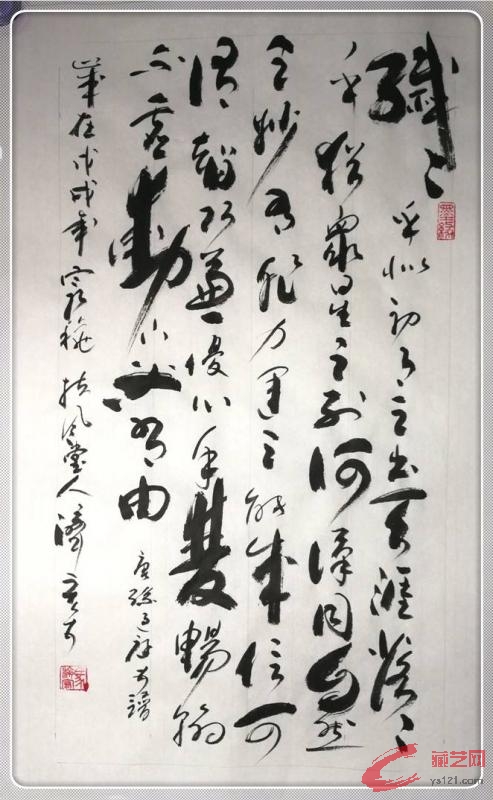 纖々乎似初月之出天涯落々
乎猶衆星之列河漢同自然
之妙有非力運之能成信可
謂智巧兼優心手雙暢翰
不虛動下必有由 唐孫過庭書譜
歲在戊戌年 扶风堂人
藏艺网
ys121.com